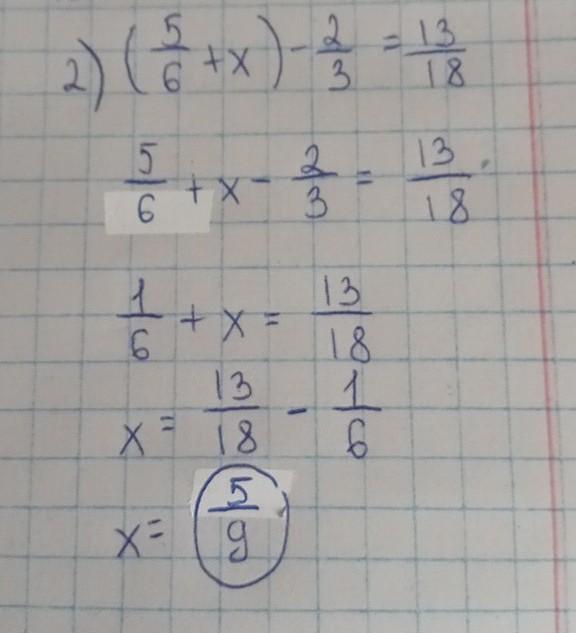 2) (5/6 + x) - 2/3 = 13/18
5/6 + x - 2/3 = 13/18
1/6 + x = 13/18
x = 13/18 - 1/6
x = 5/9